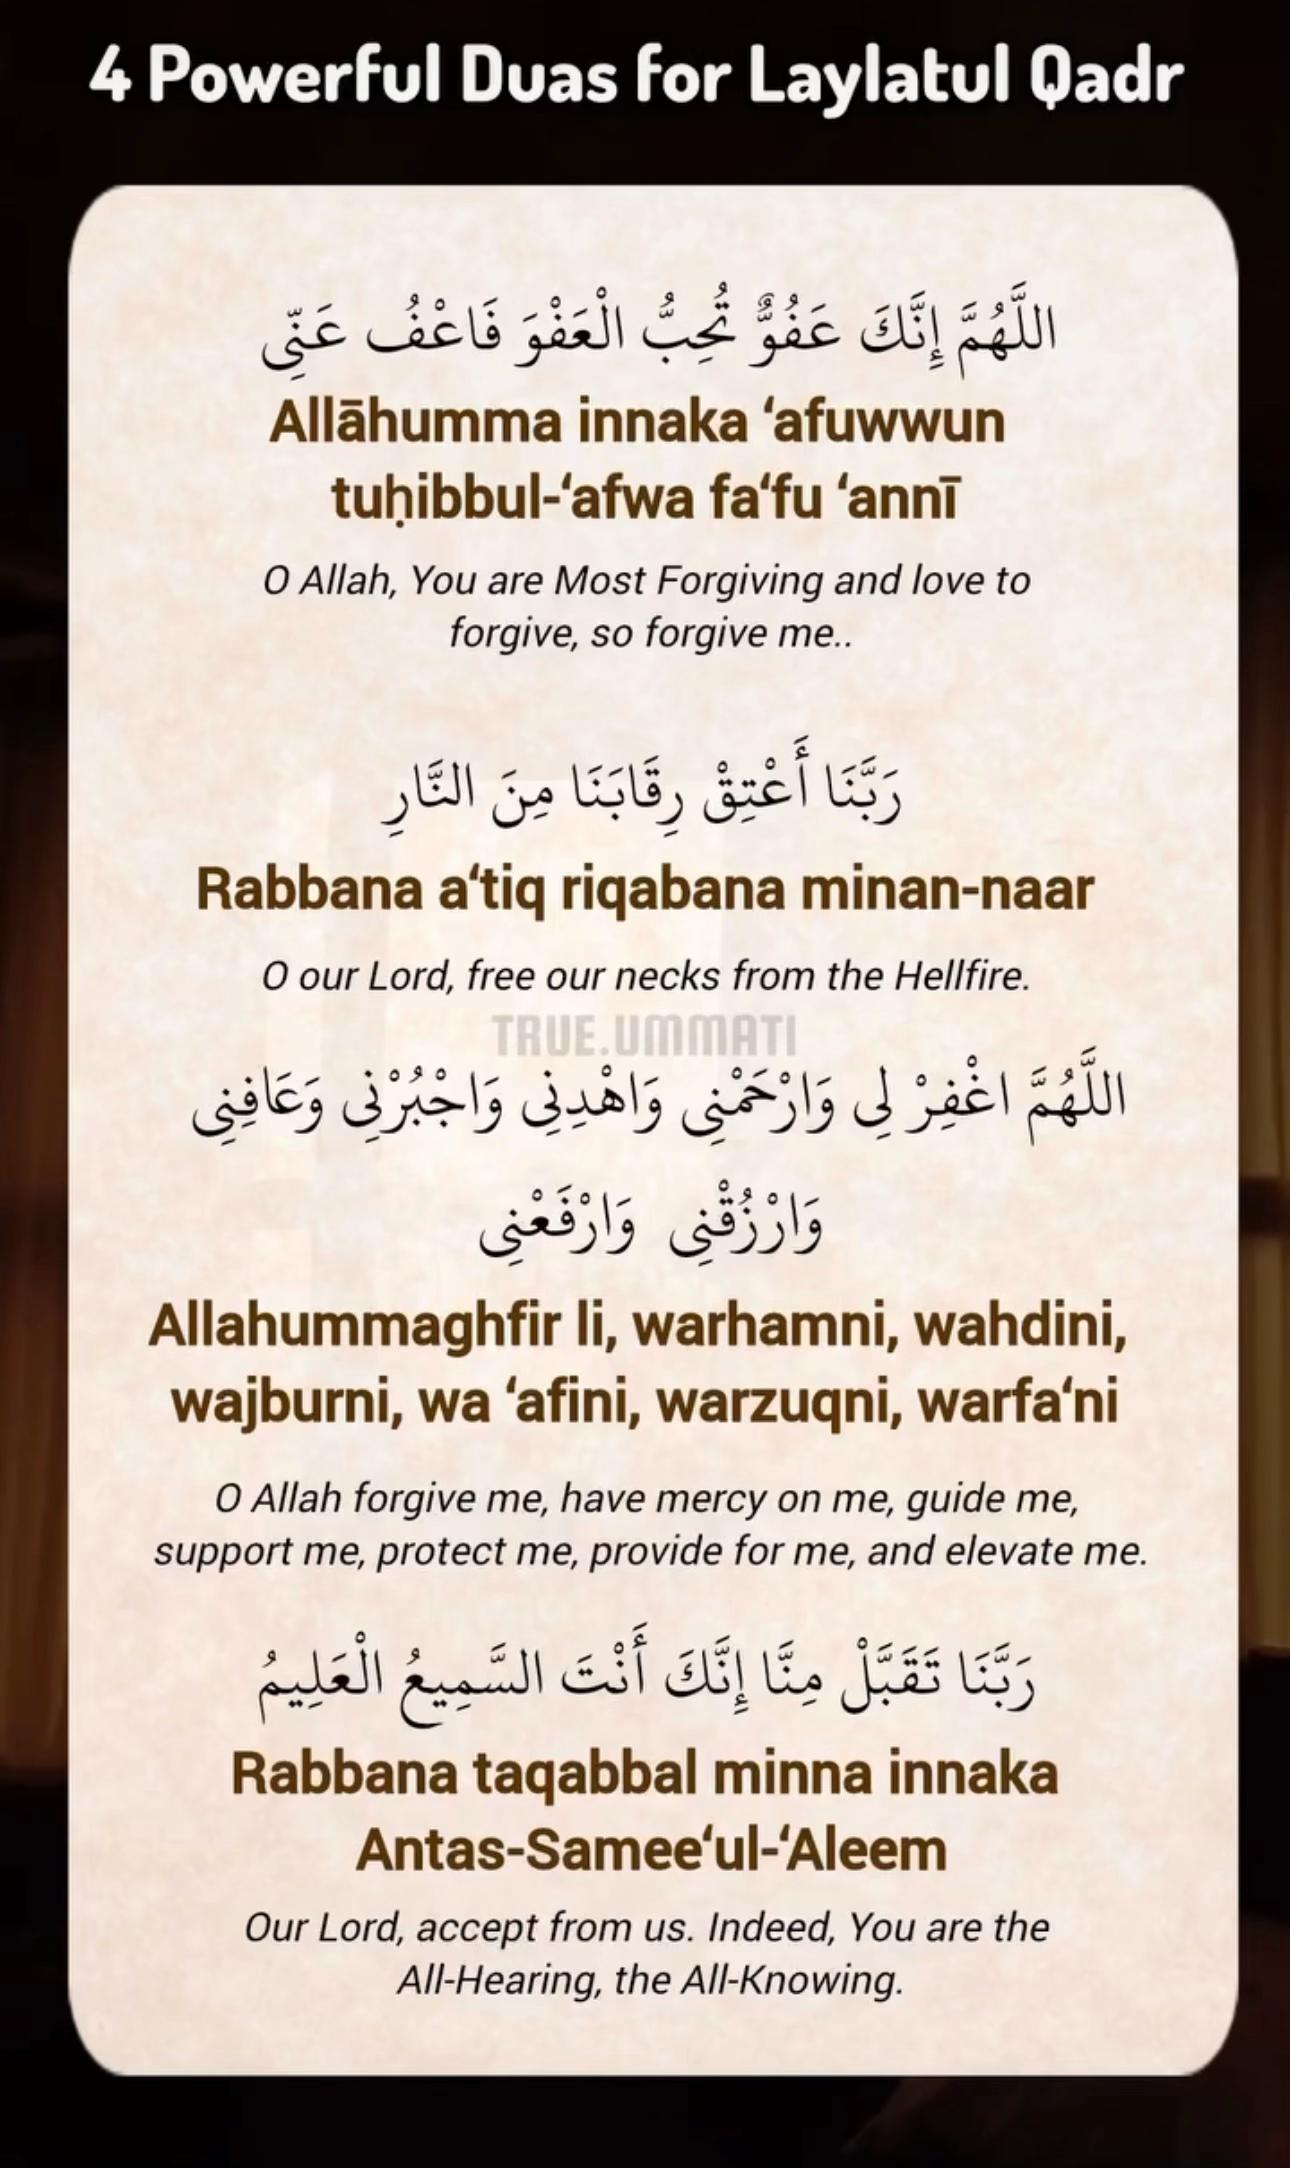 4 Powerful Duas for Laylatul Qadr
اللَّهُمَّ إِنَّكَ عَفُوٌّ تُحِبُّ الْعَفْوَ فَاعْفُ عَنِّى
Allāhumma innaka ‘afuwwun
tuḥibbul-‘afwa fa‘fu ‘annī
O Allah, You are Most Forgiving and love to
forgive, so forgive me..
رَبَّنَا أَعْتِقْ رِقَابَنَا مِنَ النَّارِ
Rabbana a‘tiq riqabana minan-naar
O our Lord, free our necks from the Hellfire.
TRUE.UMMATI
اللَّهُمَّ اغْفِرْ لِى وَارْحَمْنِى وَاهْدِنِى وَاجْبُرْنِى وَعَافِنِى
وَارْزُقْنِى وَارْفَعْنِى
Allahummaghfir li, warhamni, wahdini,
wajburni, wa ‘afini, warzuqni, warfa‘ni
O Allah forgive me, have mercy on me, guide me,
support me, protect me, provide for me, and elevate me.
رَبَّنَا تَقَبَّلْ مِنَّا إِنَّكَ أَنْتَ السَّمِيعُ الْعَلِيمُ
Rabbana taqabbal minna innaka
Antas-Samee‘ul-‘Aleem
Our Lord, accept from us. Indeed, You are the
All-Hearing, the All-Knowing.